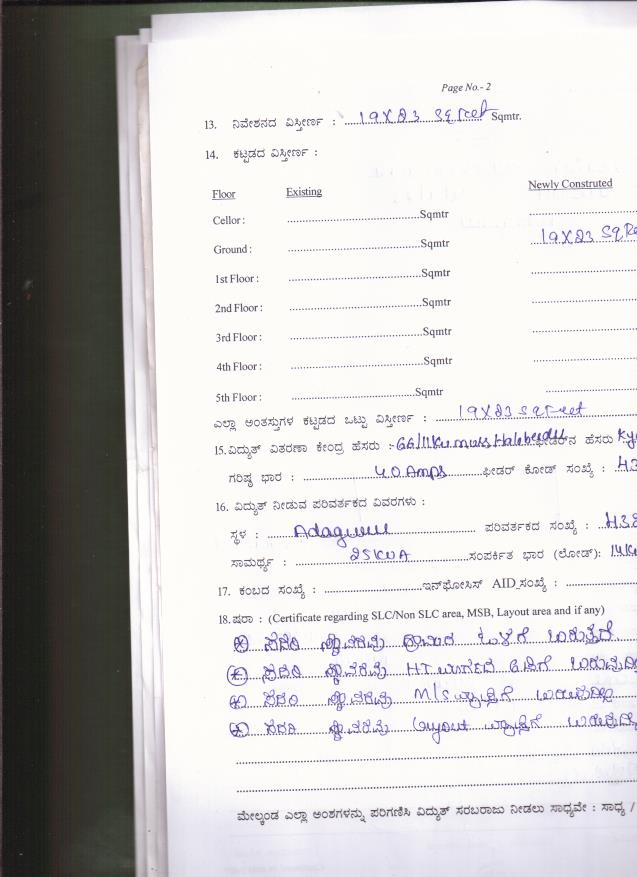 Page No.- 2
13. ನಿವೇಶನದ ವಿಸ್ತೀರ್ಣ : 19X23 SqFeet Sqmtr.
14. ಕಟ್ಟಡದ ವಿಸ್ತೀರ್ಣ :
Floor Existing Newly Construted
Cellor : Sqmtr
Ground : Sqmtr 19X23 SqFe
1st Floor : Sqmtr
2nd Floor : Sqmtr
3rd Floor : Sqmtr
4th Floor : Sqmtr
5th Floor : Sqmtr
ಎಲ್ಲಾ ಅಂತಸ್ತುಗಳ ಕಟ್ಟಡದ ಒಟ್ಟು ವಿಸ್ತೀರ್ಣ : 19X23 SqFeet
15.ವಿದ್ಯುತ್ ವಿತರಣಾ ಕೇಂದ್ರ ಹೆಸರು :- 66/11Kv muss Halebeedu ಫೀಡರ್‌ನ ಹೆಸರು
ಗರಿಷ್ಠ ಭಾರ : 40 Amps ಫೀಡರ್ ಕೋಡ್ ಸಂಖ್ಯೆ :
16. ವಿದ್ಯುತ್ ನೀಡುವ ಪರಿವರ್ತಕದ ವಿವರಗಳು :
ಸ್ಥಳ : Adaguru ಪರಿವರ್ತಕದ ಸಂಖ್ಯೆ :
ಸಾಮರ್ಥ್ಯ : 25KVA ಸಂಪರ್ಕಿತ ಭಾರ (ಲೋಡ್):
17. ಕಂಬದ ಸಂಖ್ಯೆ : ಇನ್‌ಫೋಸಿಸ್ AID ಸಂಖ್ಯೆ :
18.ಷರಾ : (Certificate regarding SLC/Non SLC area, MSB, Layout area and if any)
ಸದರಿ ಸ್ಥಾವರವು ಗ್ರಾಮದ ಒಳಗೆ ಬರುತ್ತದೆ
ಸದರಿ ಸ್ಥಾವರವು HT ಮಾರ್ಗದ
ಸದರಿ ಸ್ಥಾವರವು M/s ವ್ಯಾಪ್ತಿಗೆ ಬರುವುದಿಲ್ಲ
ಸದರಿ ಸ್ಥಾವರವು Layout ವ್ಯಾಪ್ತಿಗೆ
ಮೇಲ್ಕಂಡ ಎಲ್ಲಾ ಅಂಶಗಳನ್ನು ಪರಿಗಣಿಸಿ ವಿದ್ಯುತ್ ಸರಬರಾಜು ನೀಡಲು ಸಾಧ್ಯವೇ : ಸಾಧ್ಯ /